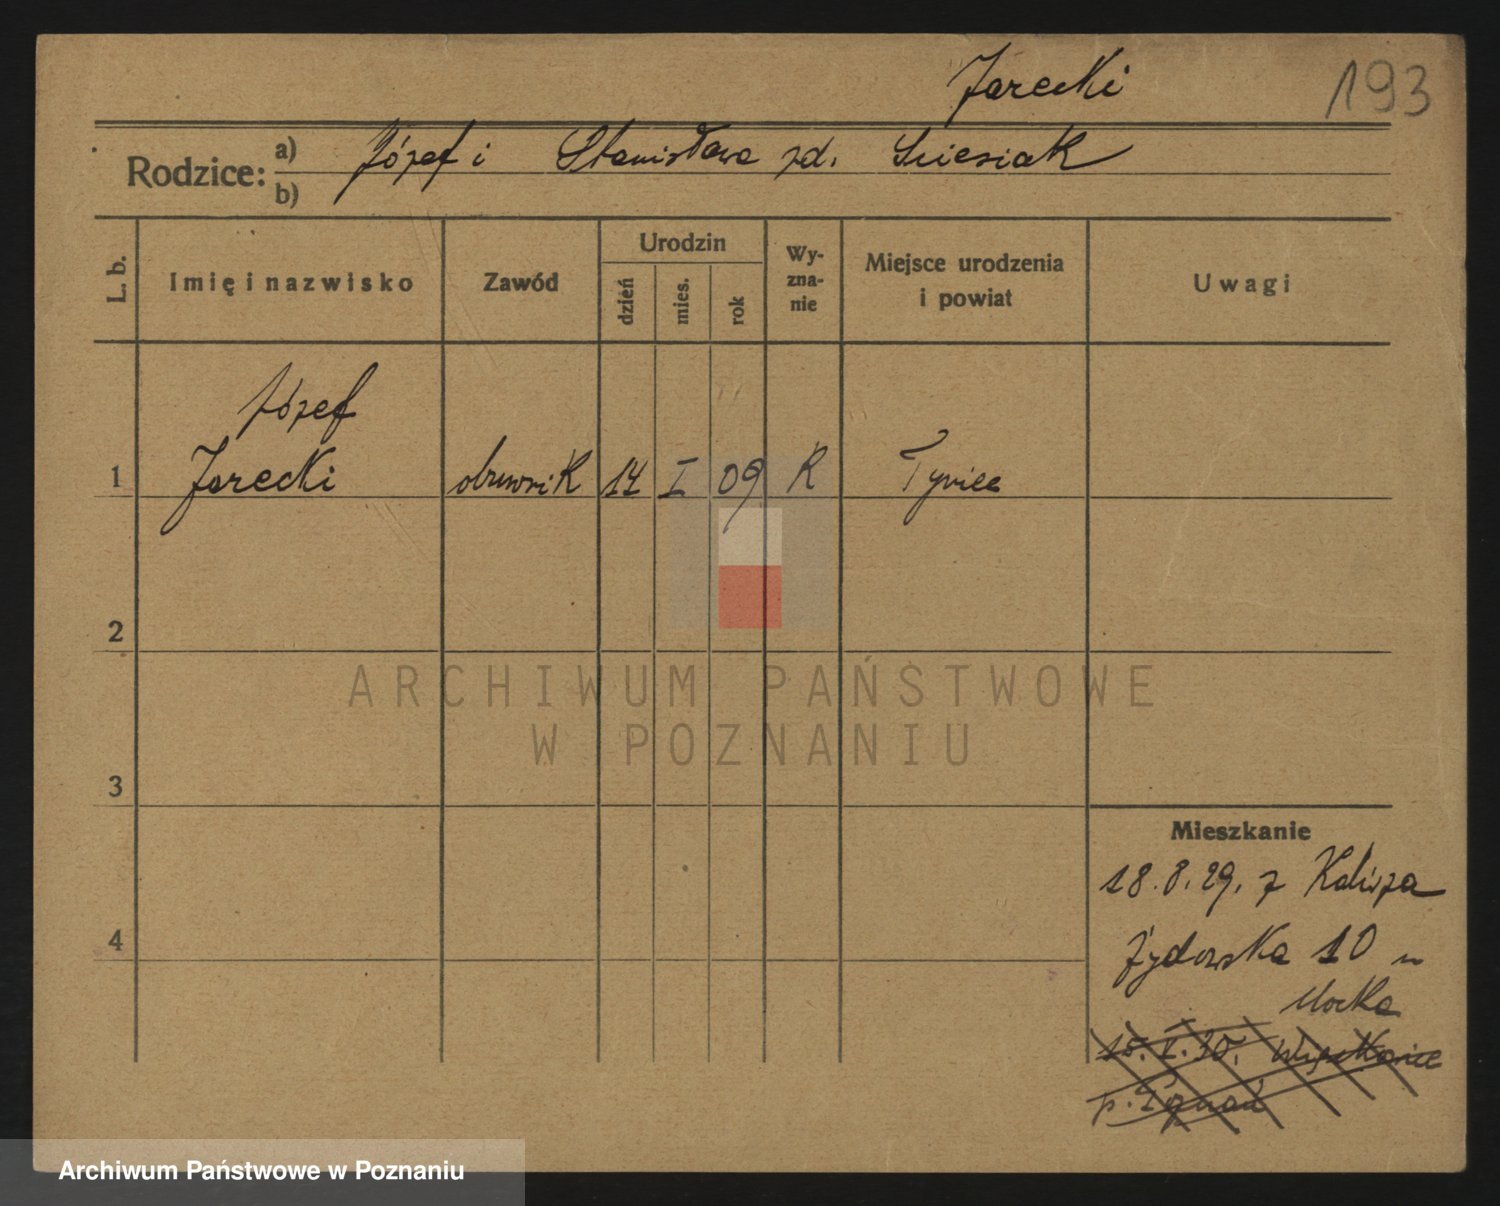 Jarecki
193
Rodzice:
a) Józef i Stanisława zd.
b)
L. b.
Imię i nazwisko
Zawód
Urodzin
dzień
mies.
rok
Wy-
zna-
nie
Miejsce urodzenia
i powiat
Uwagi
Józef
1 Jarecki
14 I 09 R Tyniec
2
3
4
Mieszkanie
18.8.29. z Kalisza
Żydowska 10 u
15.I.30.
p. Poznań
ARCHIWUM PAŃSTWOWE
W POZNANIU
Archiwum Państwowe w Poznaniu